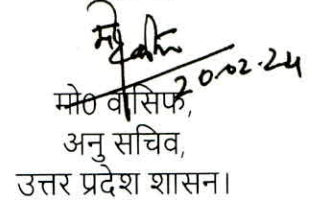 20.02.24
मो0 वासिफ,
अनु सचिव,
उत्तर प्रदेश शासन।